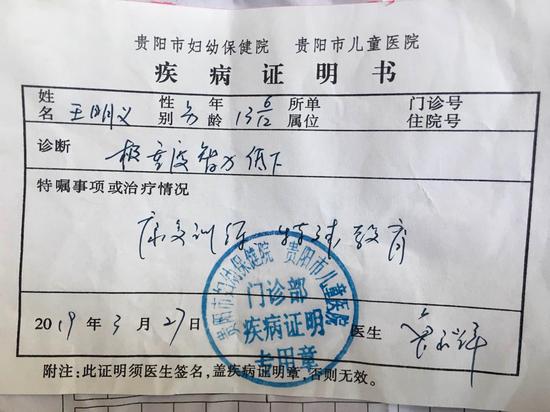 贵阳市妇幼保健院 贵阳市儿童医院
疾病证明书
姓名 王明义 性别 男 年龄 13 6/12 所单属位 门诊号 住院号
诊断 极重度智力低下
特嘱事项或治疗情况
康复训练 特殊教育
贵阳市妇幼保健院 贵阳市儿童医院
门诊部
疾病证明
专用章
2019年3月27日 医生
附注:此证明须医生签名,盖疾病证明章,否则无效。